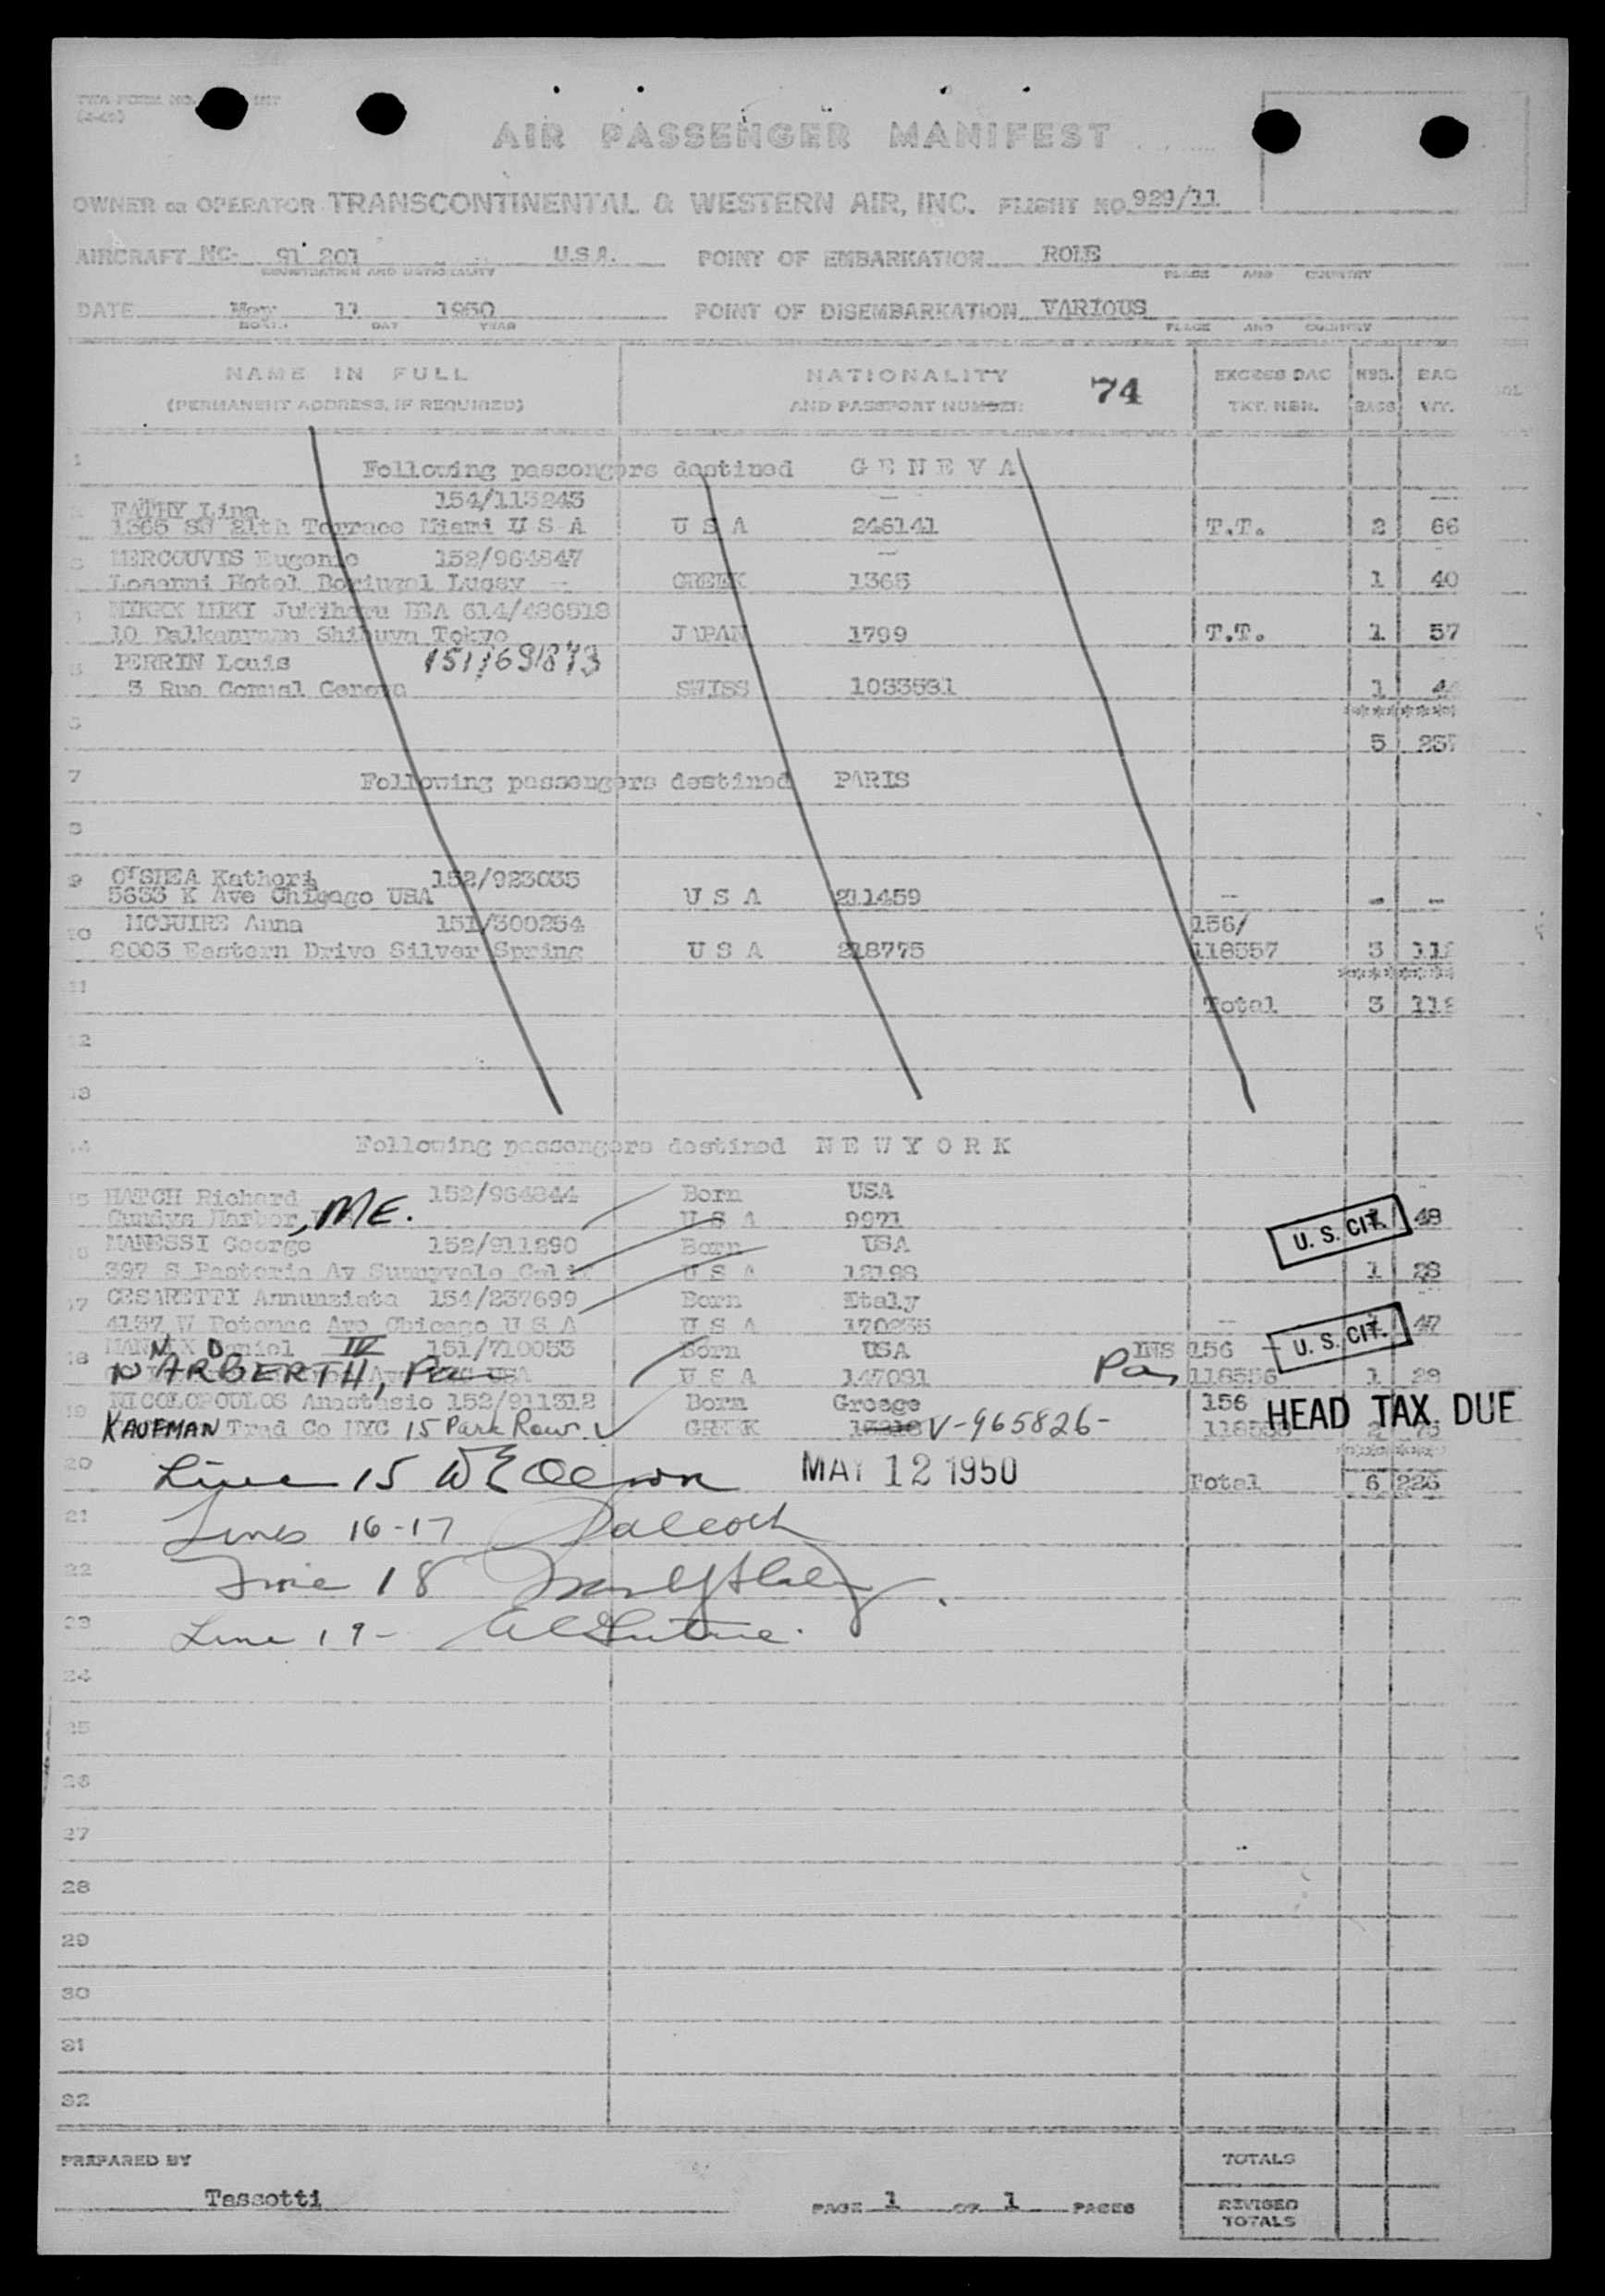 TWA FORM NO.
AIR PASSENGER MANIFEST
OWNER OR OPERATOR TRANSCONTINENTAL & WESTERN AIR, INC. FLIGHT NO. 929/11
AIRCRAFT NC- 91 201 U.S.A. POINT OF EMBARKATION ROME
REGISTRATION AND NATIONALITY PLACE AND COUNTRY
DATE May 11 1950 POINT OF DISEMBARKATION VARIOUS
MONTH DAY YEAR PLACE AND COUNTRY
NAME IN FULL NATIONALITY 74 EXCESS BAG NBR. BAG
(PERMANENT ADDRESS, IF REQUIRED) AND PASSPORT NUMBER TKT. NBR. BAGS WT.
1 Following passengers destined G E N E V A
FATHY Lina 154/113243
1365 SW 21th Terrace Miami U S A U S A 246141 T.T. 2 66
MERCOUVIS Eugenie 152/964847
Losanni Hotel GREEK 1365 1 40
MIKI Jukiharu 614/486518
10 Dalkanyama Shibuya Tokyo JAPAN 1799 T.T. 1 57
PERRIN Louis 151/691873
3 Rue Geneva SWISS 1033531 1
5
7 Following passengers destined PARIS
9 O'SHEA Katheri 152/923035
5633 K Ave Chicago USA U S A 211459 - - -
10 MCGUIRE Anna 151/300254 156/
8003 Eastern Drive Silver Spring U S A 218775 118557 3
11 Total 3
12
13
14 Following passengers destined N E W Y O R K
15 HATCH Richard 152/964844 Born USA
Cundys Harbor, ME. U S A 9971 U. S. CIT. 48
16 MANESSI George 152/911290 Born USA
397 S Pastoria Av Sunnyvale Calif U S A 12198 1 28
17 CESARETTI Annunziata 154/237699 Born Italy
4137 W Potomac Ave Chicago U S A U S A 170235 U. S. CIT. 47
18 Daniel IV 151/710053 Born USA INS 156
NARBERTH, Pa U S A 147081 Pa, 118556 1 28
19 NICOLOPOULOS Anastasio 152/911312 Born Greece 156 HEAD TAX DUE
KAUFMAN Trad Co NYC 15 Park Row GREEK V-965826-
20 Line 15 MAY 12 1950 Total 6 226
21 Lines 16-17
22 Line 18
23 Line 19-
24
25
26
27
28
29
30
31
32
PREPARED BY TOTALS
Tassotti PAGE 1 OF 1 PAGES REVISED TOTALS